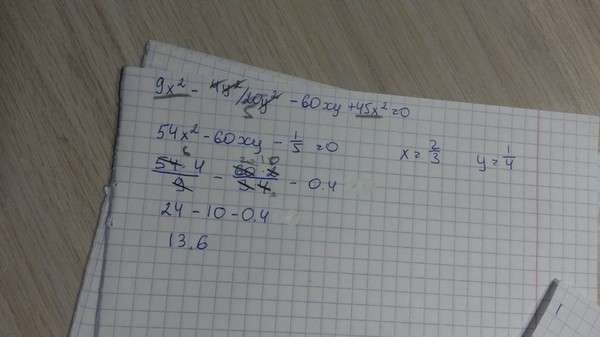 9x² - 4y²/20y² - 60xy + 45x² = 0
5
54x² - 60xy - 1/5 = 0
x = 2/3 y = 1/4
6 20 10
54·4/9 - 60·2/3·4 - 0.4
24 - 10 - 0.4
13.6